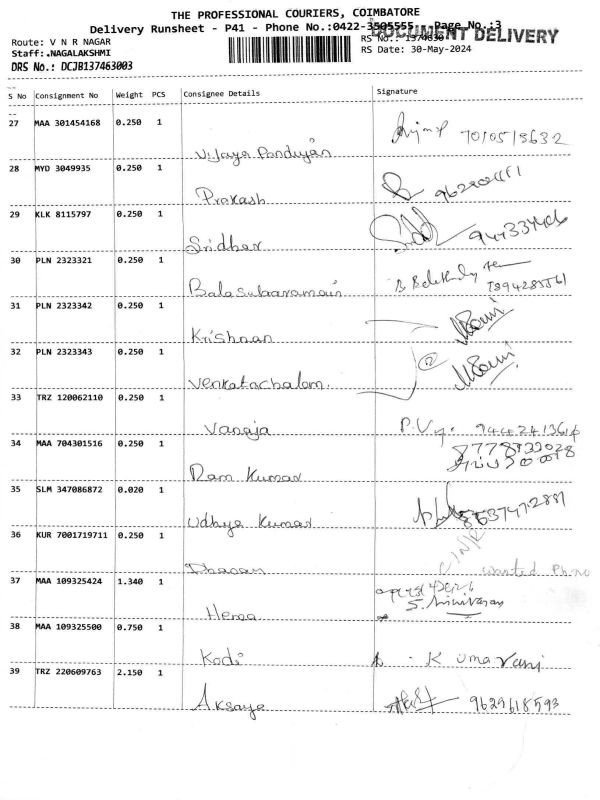 THE PROFESSIONAL COURIERS, COIMBATORE
Delivery Runsheet - P41 - Phone No.:0422-3505555 Page No.:3
DOCUMENT DELIVERY
Route: V N R NAGAR
RS No.: 1374630
Staff:.NAGALAKSHMI
RS Date: 30-May-2024
DRS No.: DCJB137463003
S No Consignment No Weight PCS Consignee Details Signature
27 MAA 301454168 0.250 1
Vijaya Pandiyan 7010513632
28 MYD 3049935 0.250 1
Prakash
29 KLK 8115797 0.250 1
Sridhar
30 PLN 2323321 0.250 1
Balasubaramani
31 PLN 2323342 0.250 1
Krishnan
32 PLN 2323343 0.250 1
Venkatachalam.
33 TRZ 120062110 0.250 1
Vanaja
34 MAA 704301516 0.250 1
Ram Kumar
35 SLM 347086872 0.020 1
Udhya Kumar
36 KUR 7001719711 0.250 1
wanted Ph.no
37 MAA 109325424 1.340 1
Hema S. Srinivasan
38 MAA 109325500 0.750 1
Kodi - K umarani
39 TRZ 220609763 2.150 1
Aksaya 9629618593